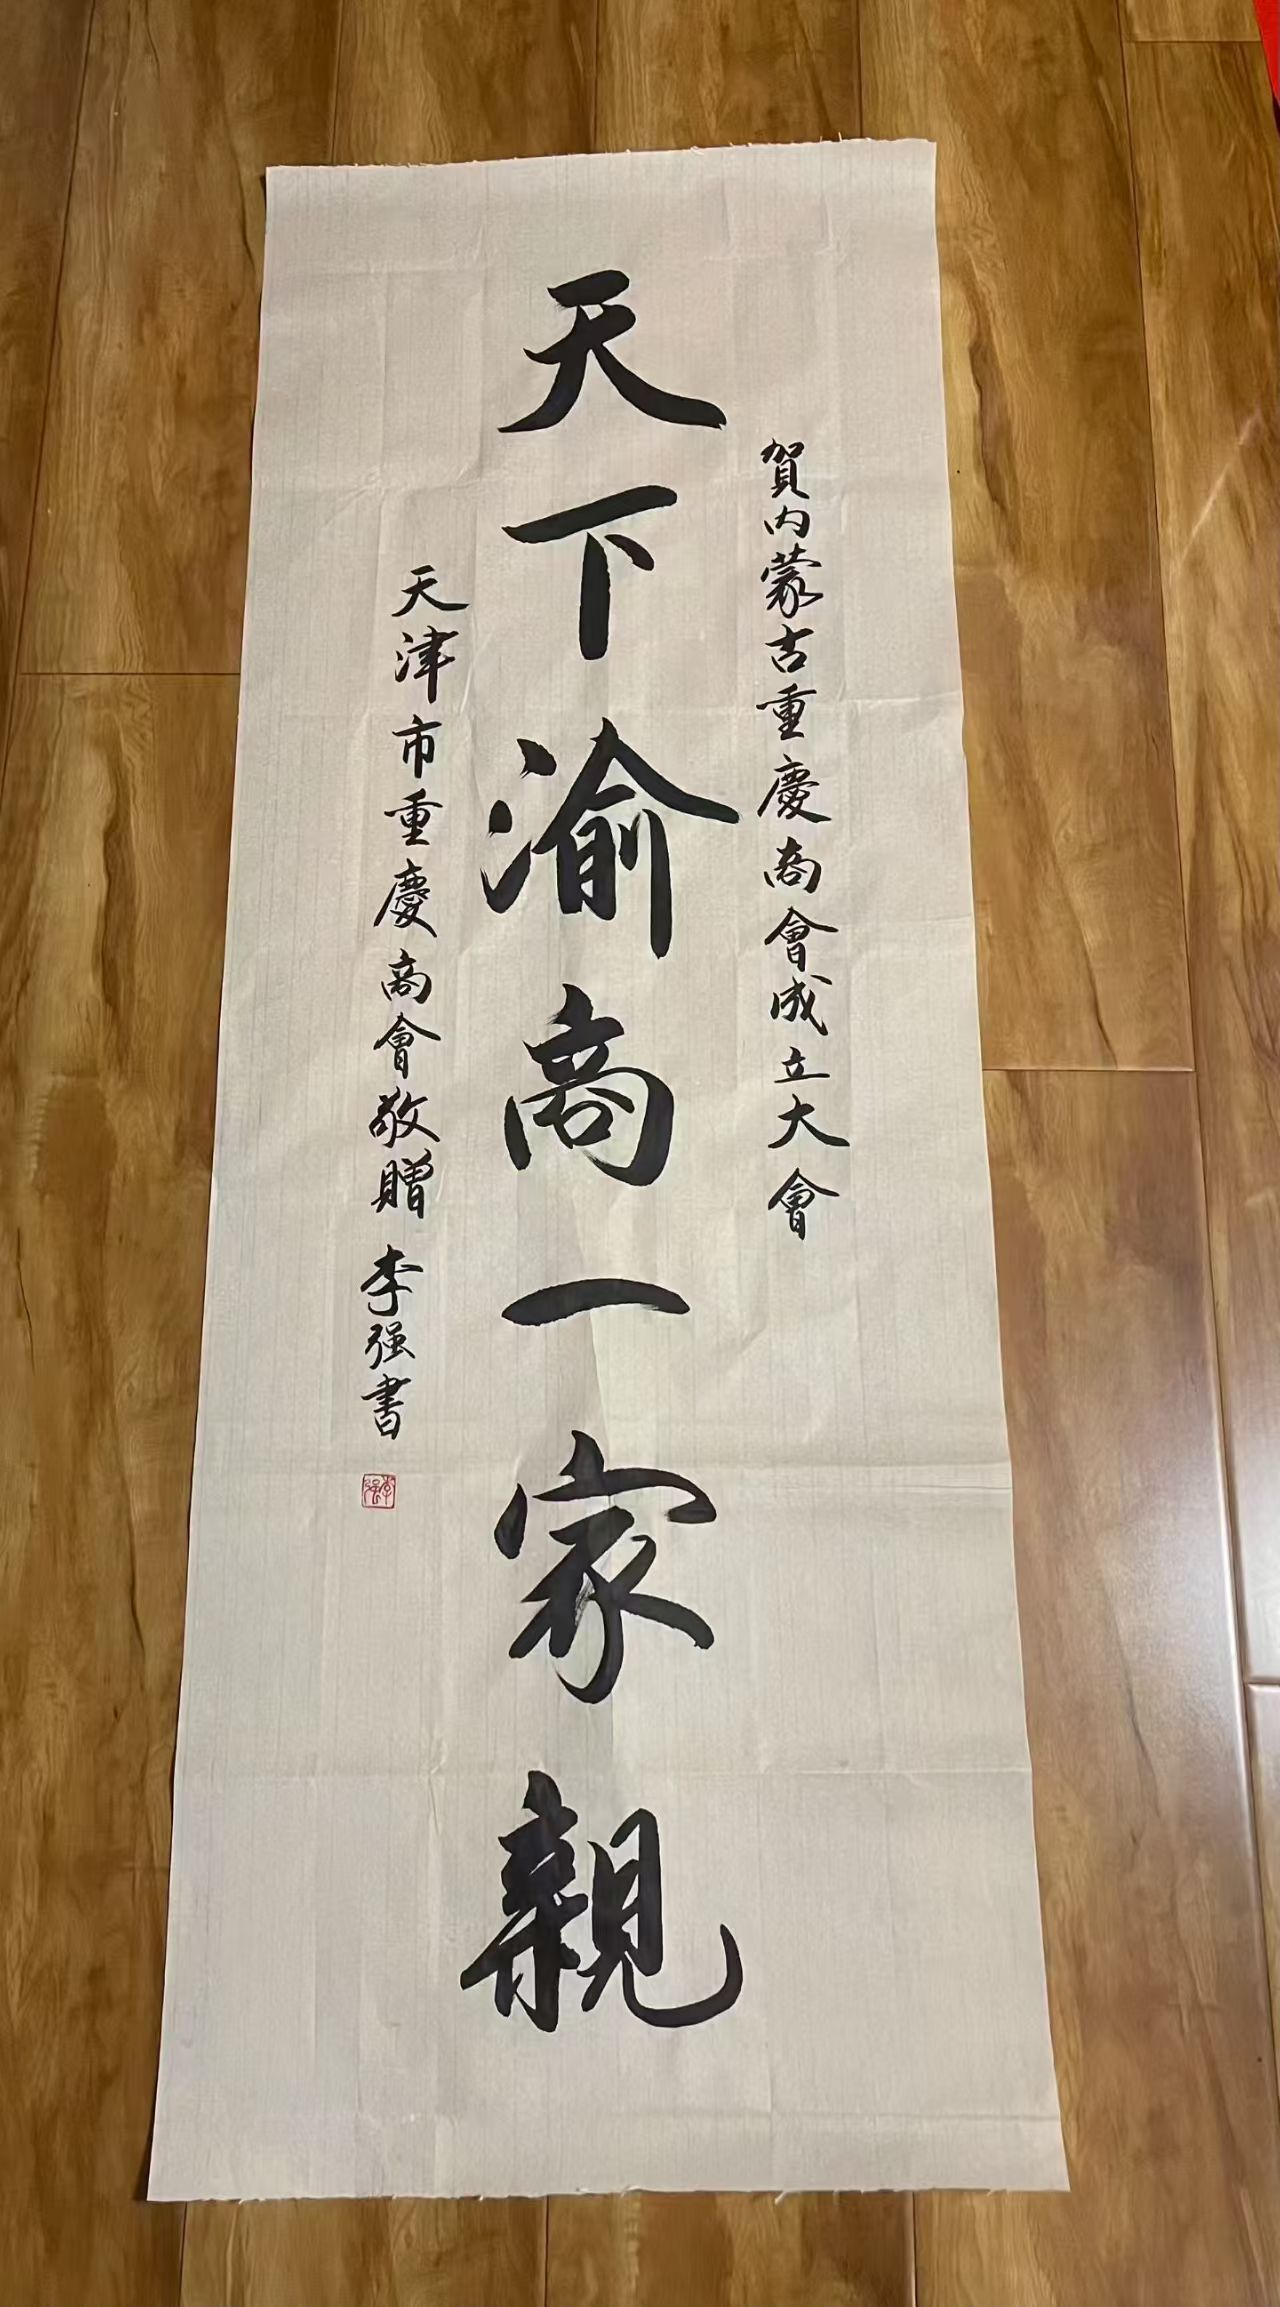 賀内蒙古重慶商會成立大會
天下渝商一家親
天津市重慶商會敬贈 李强書
李强